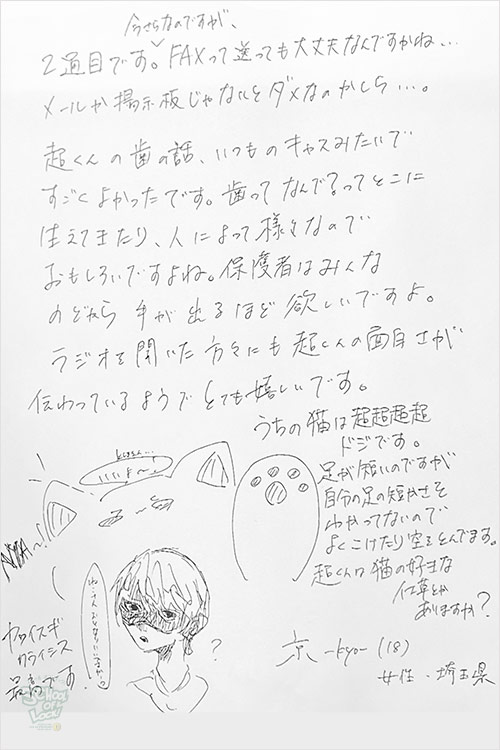 今さらなのですが、
2通目です。FAXって送っても大丈夫なんですかね…
メールか掲示板じゃないとダメなのかしら…。
超くんの歯の話、いつものキャスみたいで
すごくよかったです。歯ってなんで?ってとこに
生えてきたり、人によって様々なので
おもしろいですよね。保護者はみんな
のどから手が出るほど欲しいですよ。
ラジオを聞いた方々にも超くんの面白さが
伝わっているようでとても嬉しいです。
うちの猫は超超超超
ドジです。
足が短いのですが
自分の足の短かさを
わかってないので
よくこけたり空をとんでます。
超くんは猫の好きな
仕草とか
ありますか?
いいよ〜
NYA〜!
カワイスギ
クライシス
最高です。
?
京 -kyo- (18)
女性・埼玉県
SCHOOL OF LOCK!